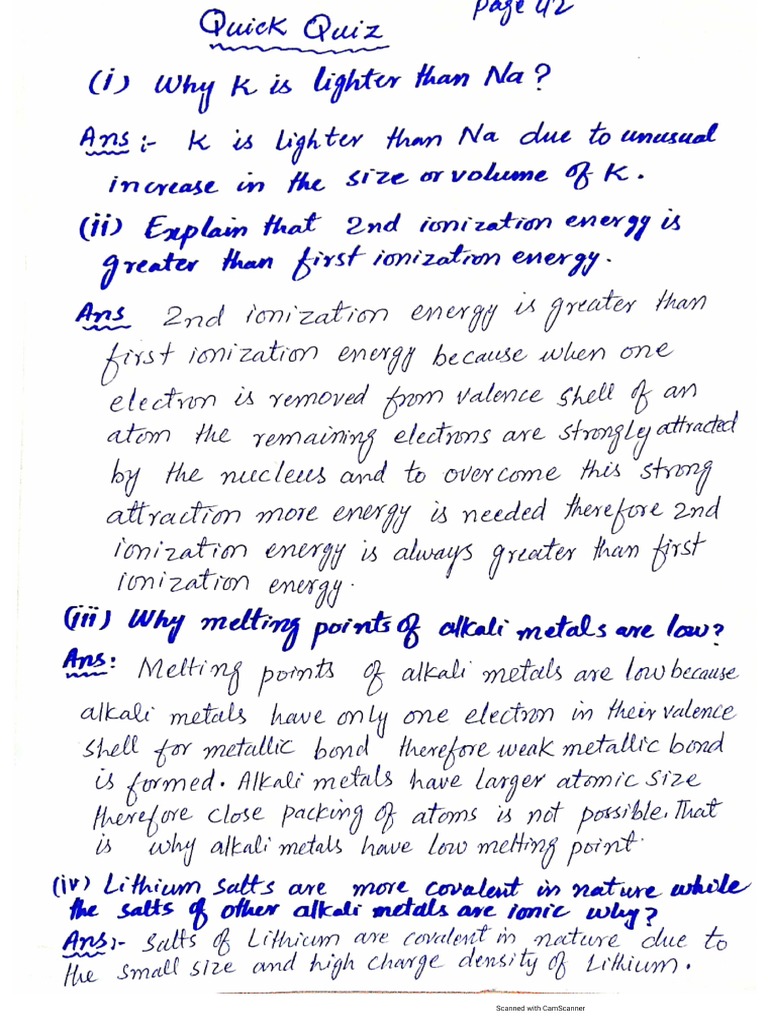 Page 42
Quick Quiz
(i) Why K is lighter than Na?
Ans:- K is lighter than Na due to unusual
increase in the size or volume of K.
(ii) Explain that 2nd ionization energy is
greater than first ionization energy.
Ans 2nd ionization energy is greater than
first ionization energy because when one
electron is removed from valence shell of an
atom the remaining electrons are strongly attracted
by the nucleus and to overcome this strong
attraction more energy is needed therefore 2nd
ionization energy is always greater than first
ionization energy.
(iii) Why melting points of alkali metals are low?
Ans: Melting points of alkali metals are low because
alkali metals have only one electron in their valence
shell for metallic bond therefore weak metallic bond
is formed. Alkali metals have larger atomic size
therefore close packing of atoms is not possible. That
is why alkali metals have low melting point.
(iv) Lithium salts are more covalent in nature while
the salts of other alkali metals are ionic why?
Ans:- Salts of Lithium are covalent in nature due to
the small size and high charge density of Lithium.
Scanned with CamScanner